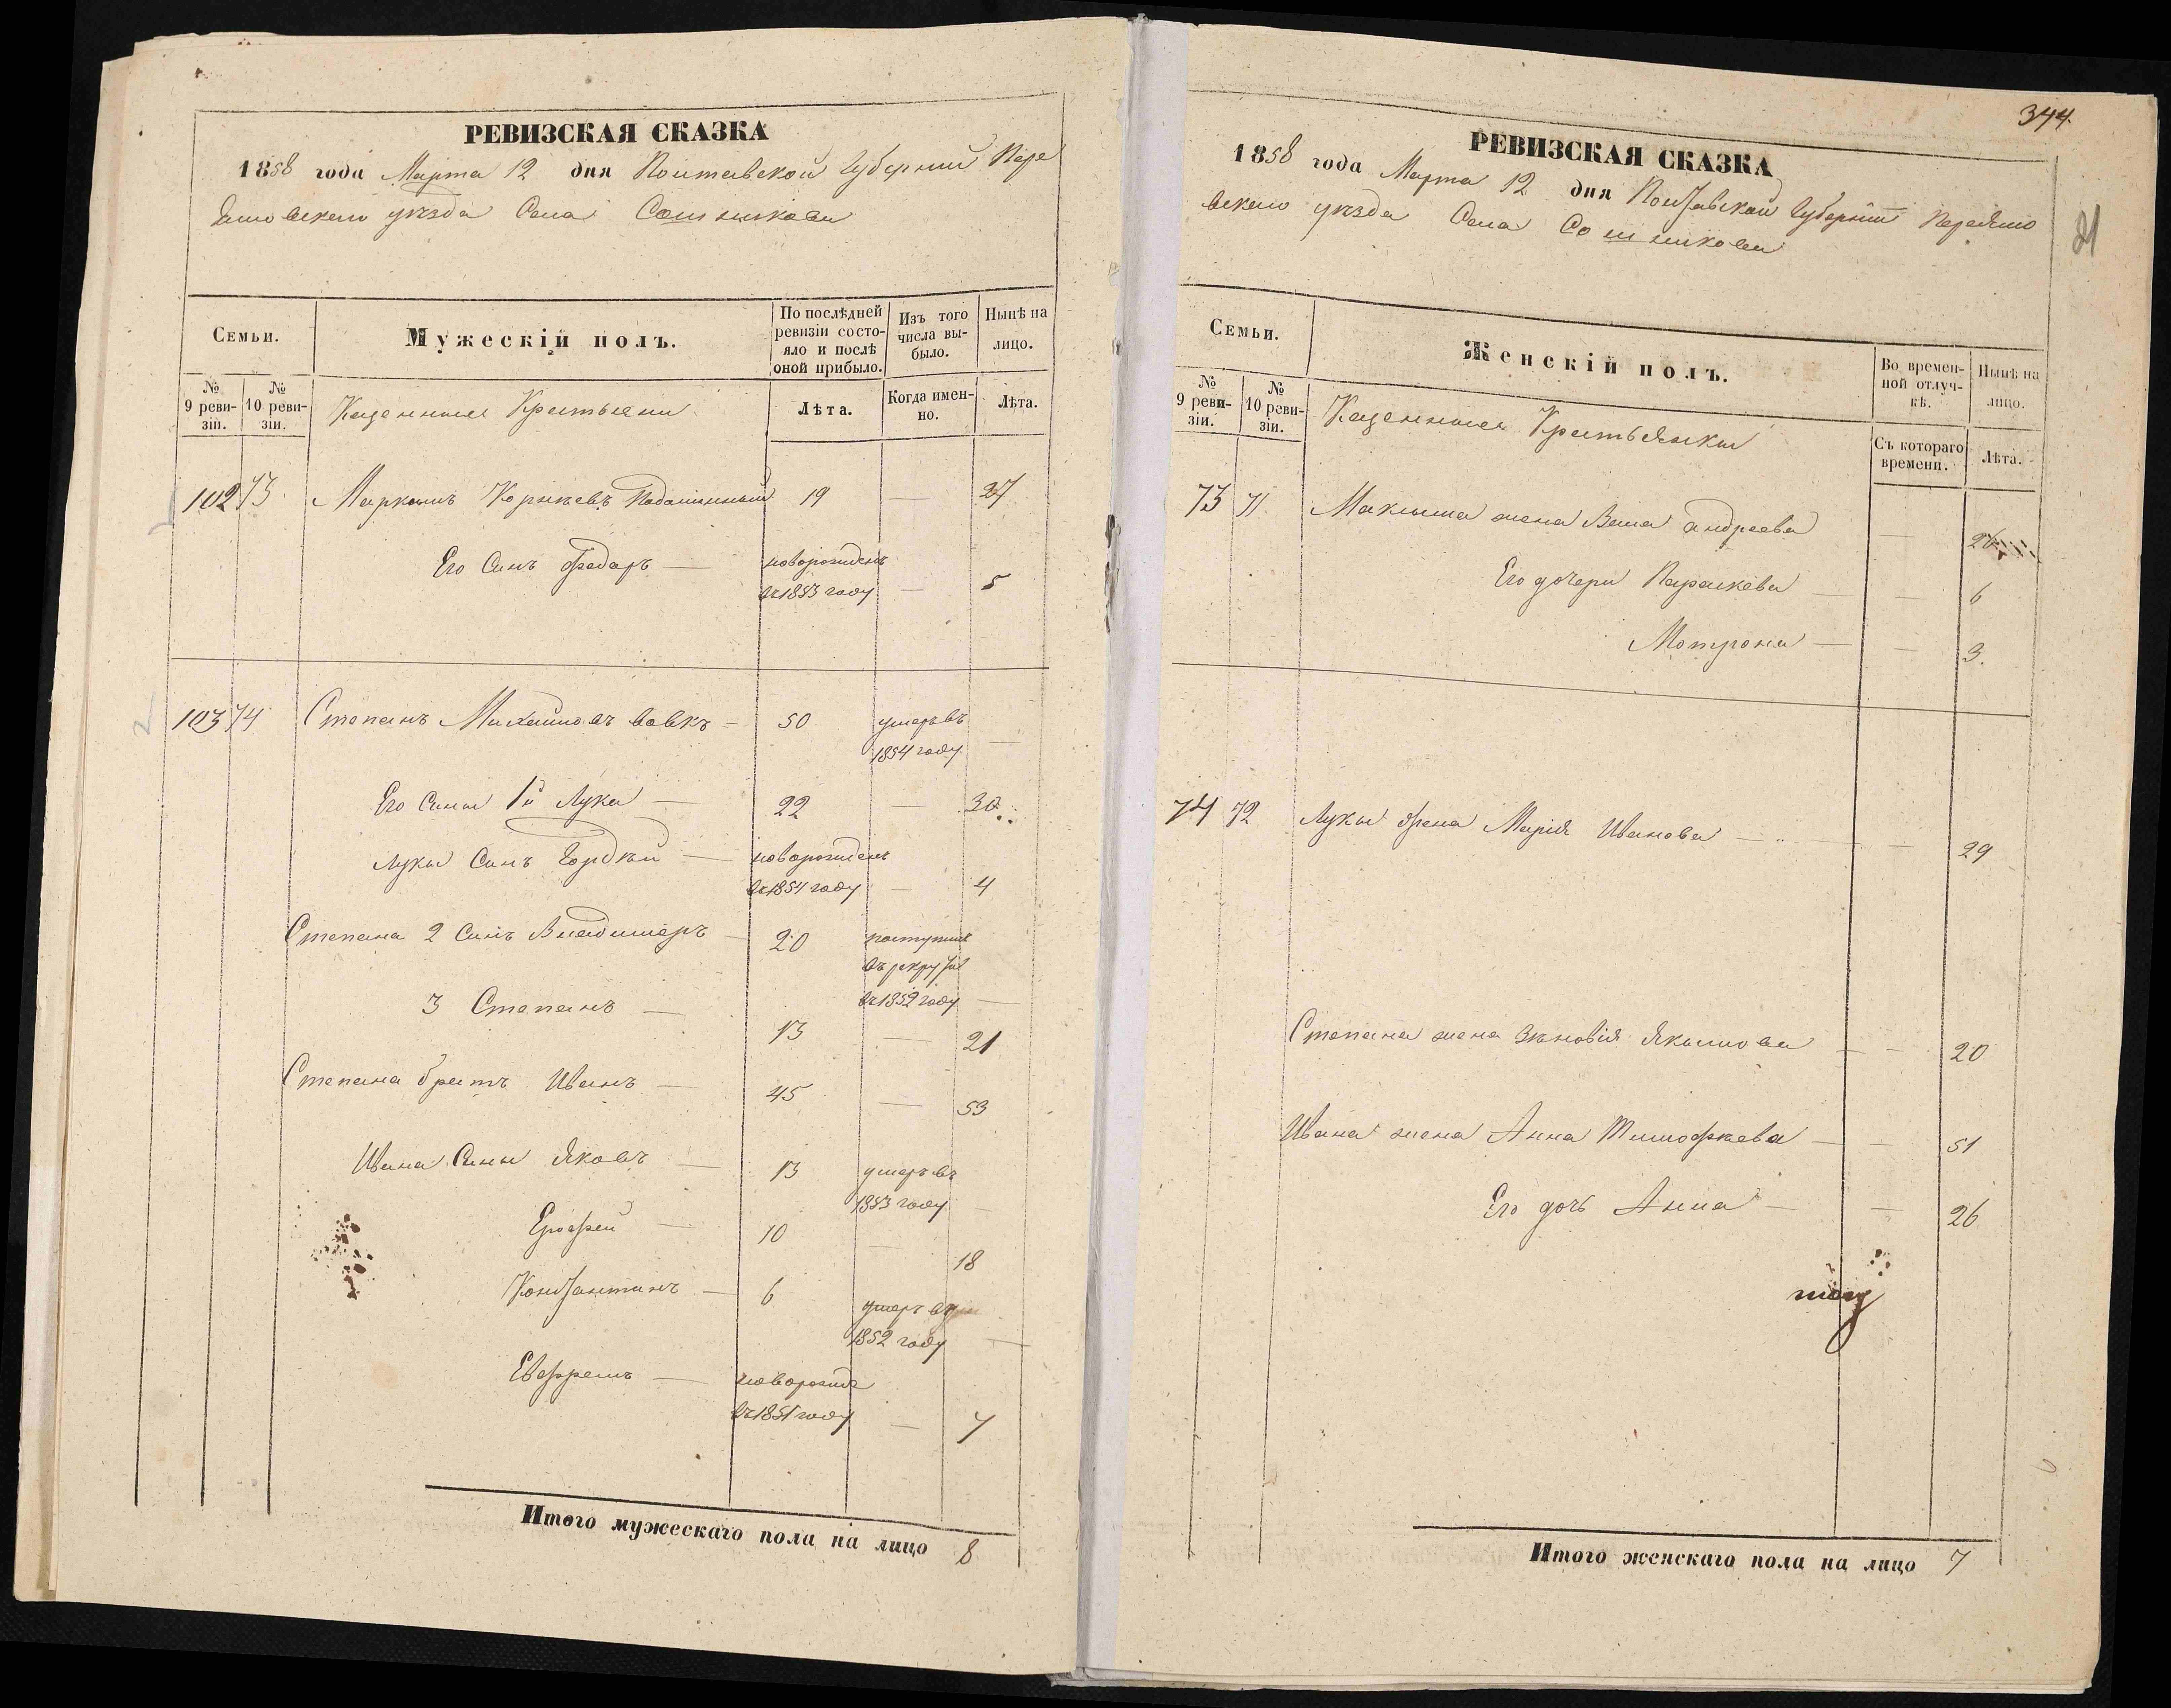 РЕВИЗСКАЯ СКАЗКА
1858 года Марта 12 дня Полтавской Губернии Пере
яславскаго уезда Села Сошникова
Семьи.
Мужескій полъ.
По послѣдней ревизіи состояло и послѣ оной прибыло.
Изъ того числа выбыло.
Нынѣ на лицо.
№ 9 ревизіи.
№ 10 ревизіи.
Казенные Крестьяни
Лѣта.
Когда именно.
Лѣта.
102 73 Корнѣевъ 19 — 27
Его Синъ Федоръ — новорожденъ
въ 1853 году — 5
103 74 Степанъ Михайловъ Вовкъ — 50 умеръ въ
1854 году —
Его Сины 1й Лука — 22 — 30
Луки Синъ Гордѣй — новорожденъ
въ 1854 году — 4
Степана 2 Синъ Владимеръ — 20 поступилъ
въ рекруты
въ 1852 году —
3 Степанъ — 13 — 21
Степана братъ Иванъ — 45 — 53
Ивана Сины Яковъ — 13 умеръ въ
1853 году —
Ерофей — 10 — 18
Константинъ — 6 умеръ въ
1852 году —
Евфремъ — новорожде
въ 1851 году — 7
Итого мужескаго пола на лицо 8
344.
21
РЕВИЗСКАЯ СКАЗКА
1858 года Марта 12 дня Полтавской Губерніи Переясло
вскаго уезда Села Сошникова
Семьи.
Женскій полъ.
Во временной отлучкѣ.
Нынѣ на лицо.
№ 9 ревизіи.
№ 10 ревизіи.
Казенные Крестьянки
Съ котораго времени.
Лѣта.
73 71. жена Андреева — 26
Его дочери Параскева — — 6
Мотрона — — 3.
74 72 Луки жена Марія Иванова — — 29
Степана жена Зѣновія Якимова — — 20
Ивана жена Анна Тимофѣева — — 51
Его дочь Анна — — 26
Итого женскаго пола на лицо 7